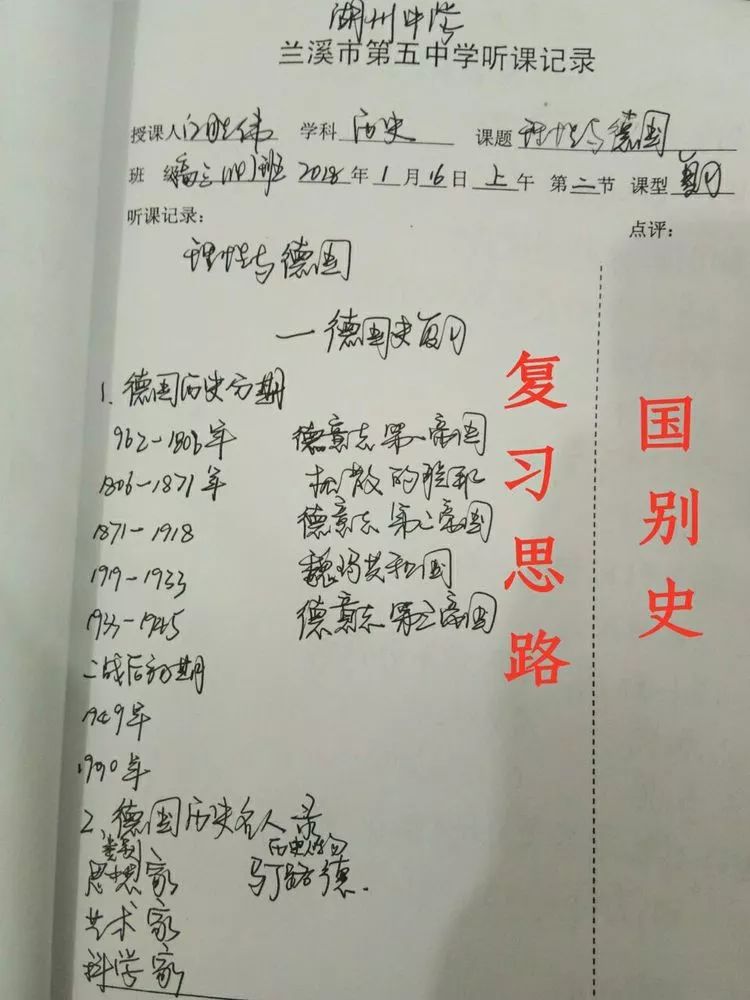 湖州中学
兰溪市第五中学听课记录
授课人 学科 历史 课题 理性与德国
班级 高三 班 2018年1月16日上午 第二节 课型 复习
听课记录: 点评:
理性与德国
一德国史复习
1、德国历史分期
962-1806年 德意志第一帝国
1806-1871年 松散的
1871-1918 德意志第二帝国
1919-1933 魏玛共和国
1933-1945 德意志第三帝国
二战后初期
1949年
1990年
2、德国历史名人录
类别 历史人物
思想家 马丁路德.
艺术家
科学家
复习思路
国别史